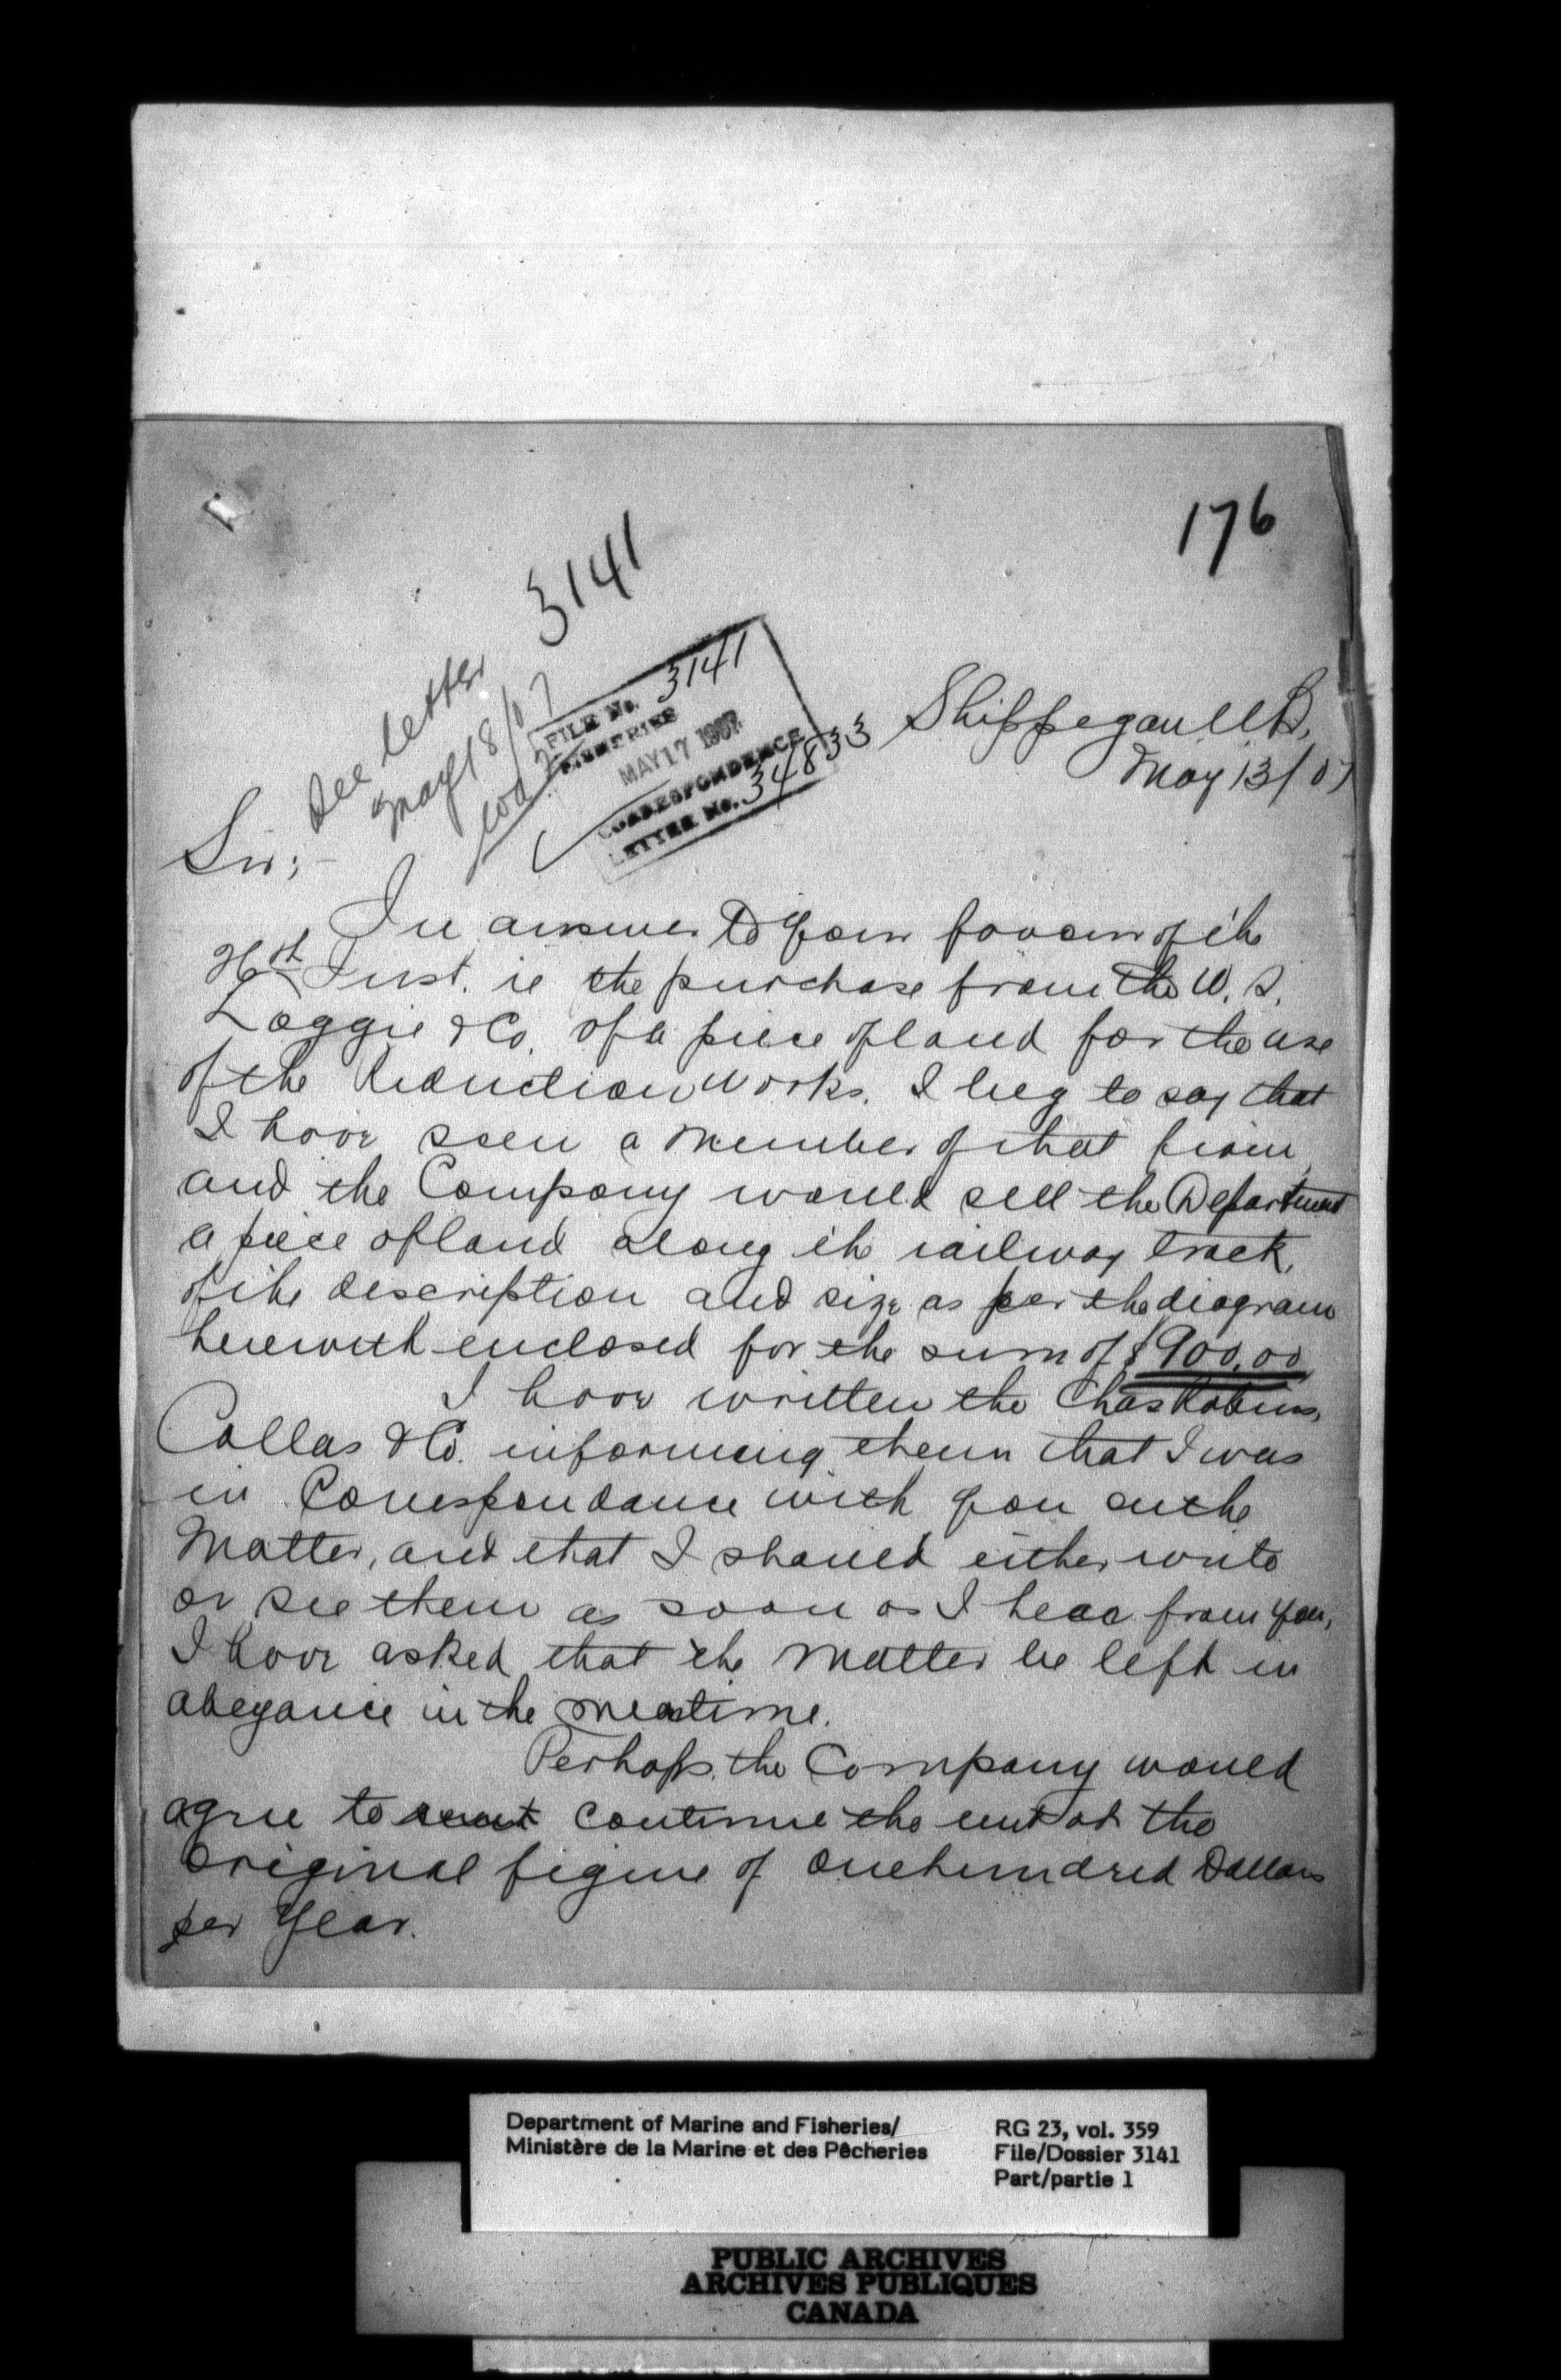 176
3141
See letter
May 18/07
FILE No. 3141
FISHERIES
MAY 17 1907
CORRESPONDENCE
LETTER No. 34833
Shippegan N.B,
May 13/07
Sir;-
In answer to your favour of the
Inst. re the purchase from the W. S.
Loggie & Co. of a piece of land for the use
of the Reduction Works. I beg to say that
I have seen a member of that firm,
and the Company would sell the Department
a piece of land along the railway track,
of the description and size as per the diagram
herewith enclosed for the sum of $900.00
I have written the Chas Robins,
Collas & Co. informing them that I was
in Correspondance with you on the
Matter, and that I should either write
or see them as soon as I hear from you,
I have asked that the Matter be left in
abeyance in the meatime.
Perhaps the Company would
agree to continue the rent at the
original figure of one hundred Dollars
per Year.
Department of Marine and Fisheries/
Ministère de la Marine et des Pêcheries
RG 23, vol. 359
File/Dossier 3141
Part/partie 1
PUBLIC ARCHIVES
ARCHIVES PUBLIQUES
CANADA